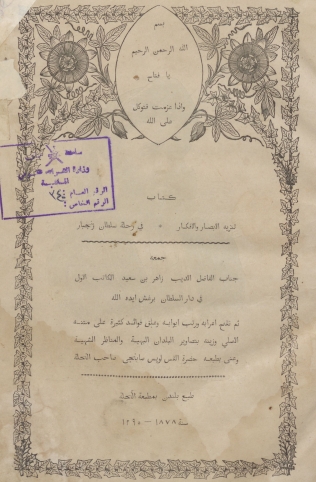 بسم
الله الرحمن الرحيم
يا فتاح
واذا عزمت فتوكل
على الله
سلطنة
وزارة التراث
المكتبة
الرقم العام
الرقم الخاص
كتاب
تنزيه الابصار والافكار * في رحلة سلطان زنجبار
جمعه
جناب الفاضل الاديب زاهر بن سعيد الكاتب الاول
في دار السلطان برغش ايده الله
ثم نقح اعرابه ورتب ابوابه وعلق فوائد كثيرة على متنه
الاصلي وزينه بتصاوير البلدان البهية والمناظر الشهية
وعنى بطبعه حضرة القس لويس صابنجي صاحب النحلة
طبع بلندن بمطبعة النحلة
سنة ١٨٧٨ – ١٢٩٠